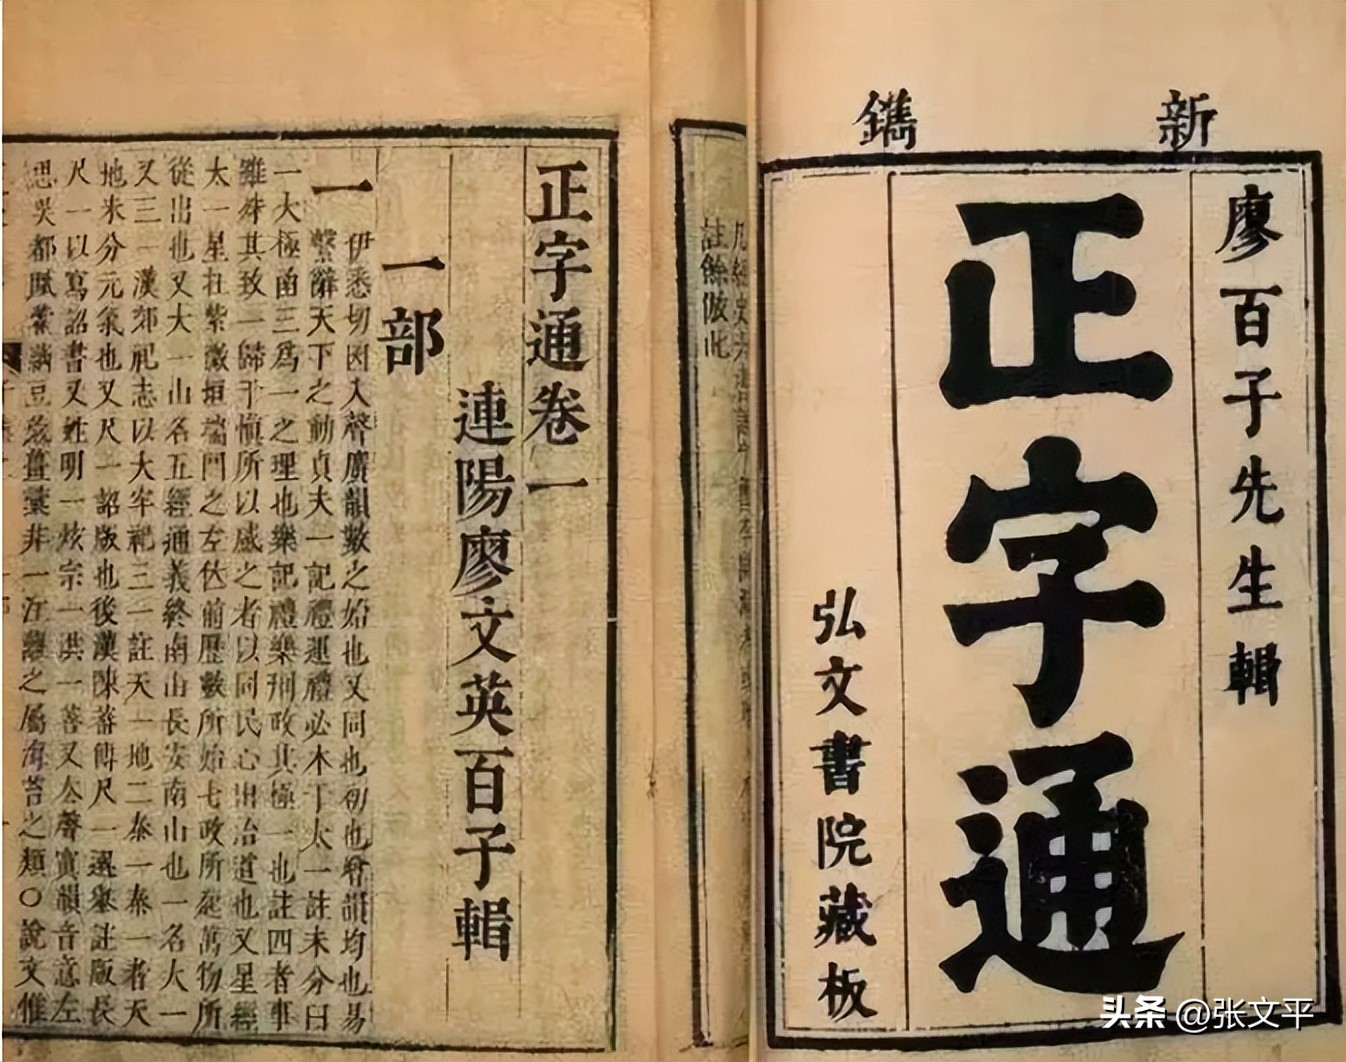 新鐫
廖百子先生輯
正字通
弘文書院藏板
註餘倣此
正字通卷一
連陽廖文英百子輯
一部
一
伊悉切因入聲廣韻數之始也又同也初也增韻均也易
繫辭天下之動貞夫一記禮運禮必本于太一註未分曰
一大極函三爲一之理也樂記禮樂刑政其極一也註四者事
雖殊其致一歸于愼所以感之者以同民心出治道也又星經
太一星在紫微垣端門之左伏前歷數所始七政所起萬物所
從出也又大一山名五經通義終南山長安南山也一名大一
又三一漢郊祀志以大牢祀三一註天一地二泰一泰一者天
地未分元氣也又尺一詔版也後漢陳蕃傳尺一選舉註版長
尺一以寫詔書又姓明一炫宗一洪一善又去聲寘韻音意左
思吳都賦藿蒳豆蔻薑彙非一江蘺之屬海苔之類○說文惟
头条 @张文平